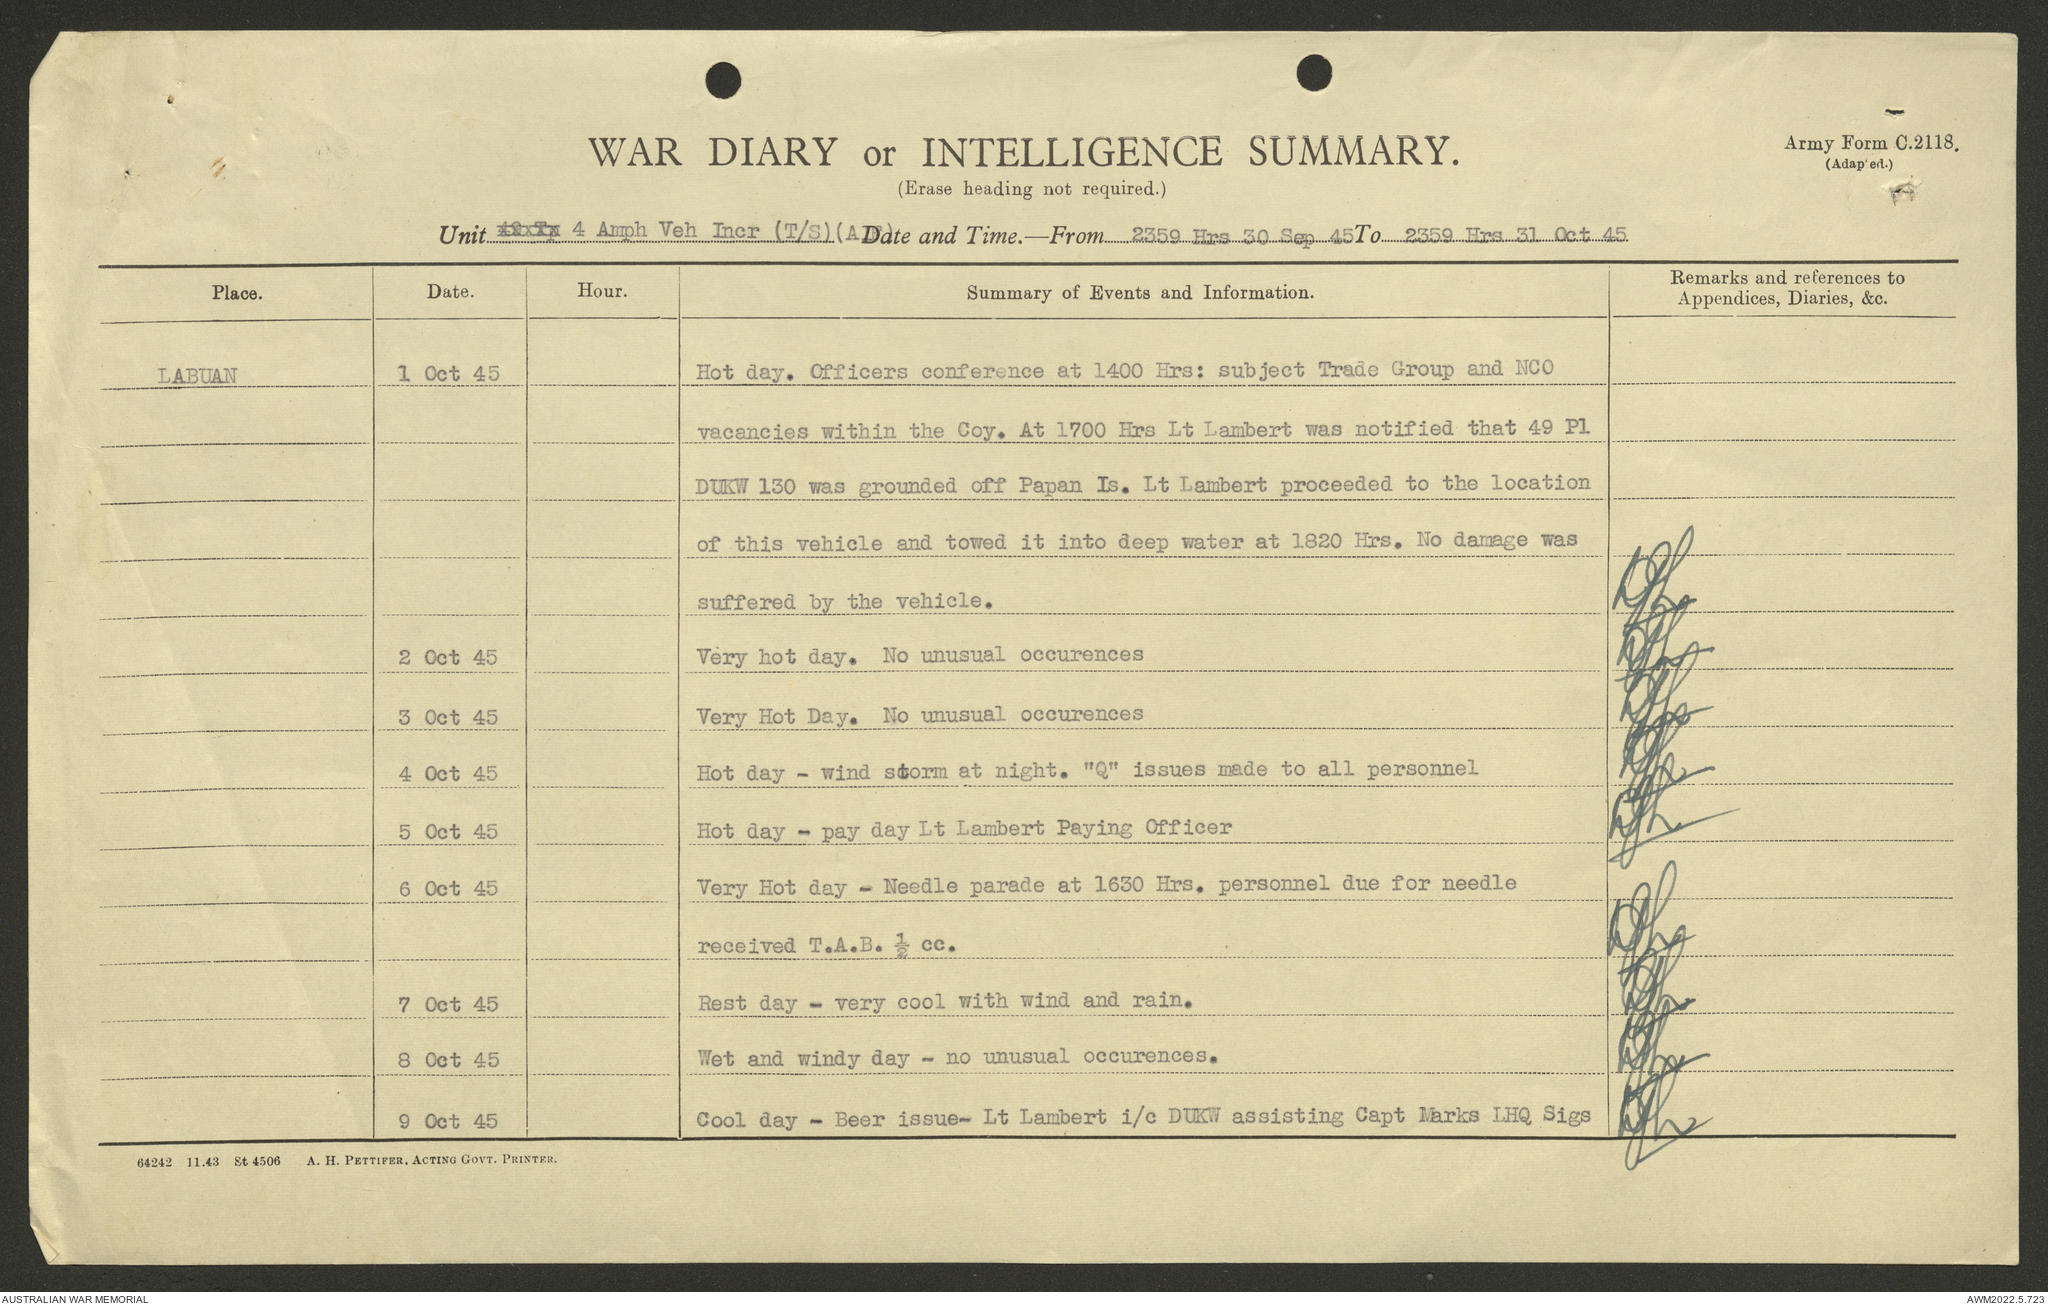 WAR DIARY or INTELLIGENCE SUMMARY.
(Erase heading not required.)
Army Form C.2118.
(Adap'ed.)
Unit 4 Amph Veh Incr (T/S)(AIF) Date and Time.—From 2359 Hrs 30 Sep 45 To 2359 Hrs 31 Oct 45
Place. Date. Hour. Summary of Events and Information. Remarks and references to
Appendices, Diaries, &c.
LABUAN 1 Oct 45 Hot day. Officers conference at 1400 Hrs: subject Trade Group and NCO
vacancies within the Coy. At 1700 Hrs Lt Lambert was notified that 49 Pl
DUKW 130 was grounded off Papan Is. Lt Lambert proceeded to the location
of this vehicle and towed it into deep water at 1820 Hrs. No damage was
suffered by the vehicle.
2 Oct 45 Very hot day. No unusual occurences
3 Oct 45 Very Hot Day. No unusual occurences
4 Oct 45 Hot day - wind storm at night. "Q" issues made to all personnel
5 Oct 45 Hot day - pay day Lt Lambert Paying Officer
6 Oct 45 Very Hot day - Needle parade at 1630 Hrs. personnel due for needle
received T.A.B. ½ cc.
7 Oct 45 Rest day - very cool with wind and rain.
8 Oct 45 Wet and windy day - no unusual occurences.
9 Oct 45 Cool day - Beer issue- Lt Lambert i/c DUKW assisting Capt Marks LHQ Sigs
64242 11.43 St 4506 A. H. PETTIFER, ACTING GOVT. PRINTER.
AUSTRALIAN WAR MEMORIAL
AWM2022.5.723